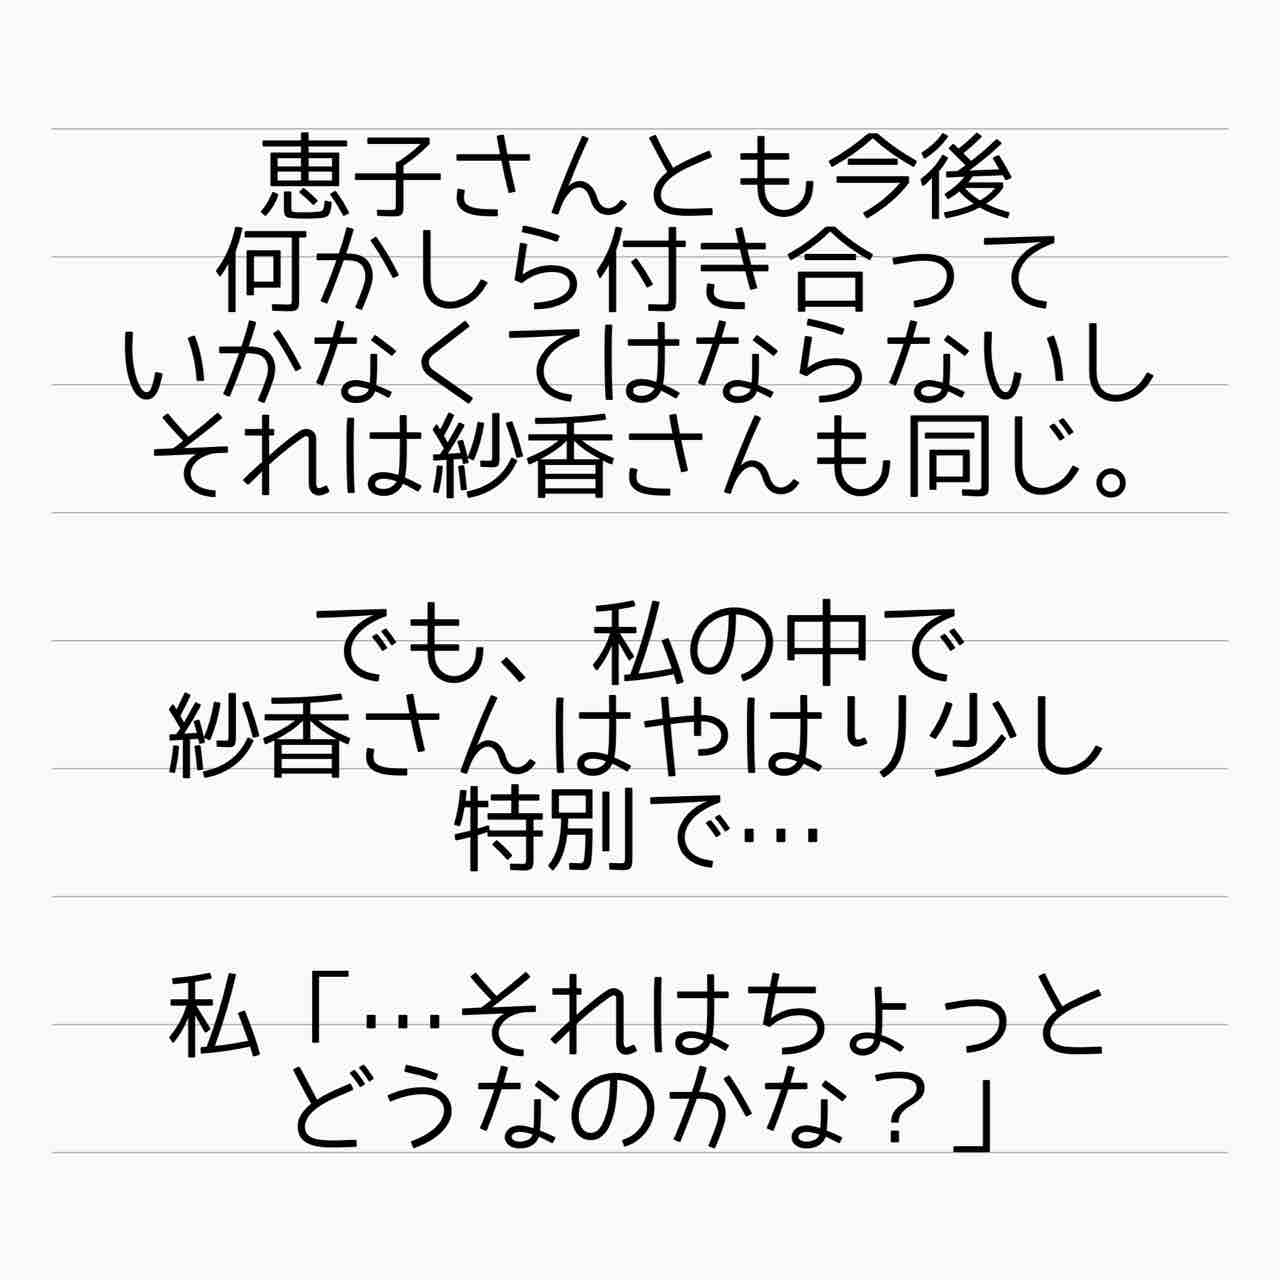 恵子さんとも今後
何かしら付き合って
いかなくてはならないし
それは紗香さんも同じ。
でも、私の中で
紗香さんはやはり少し
特別で…
私「…それはちょっと
どうなのかな？」